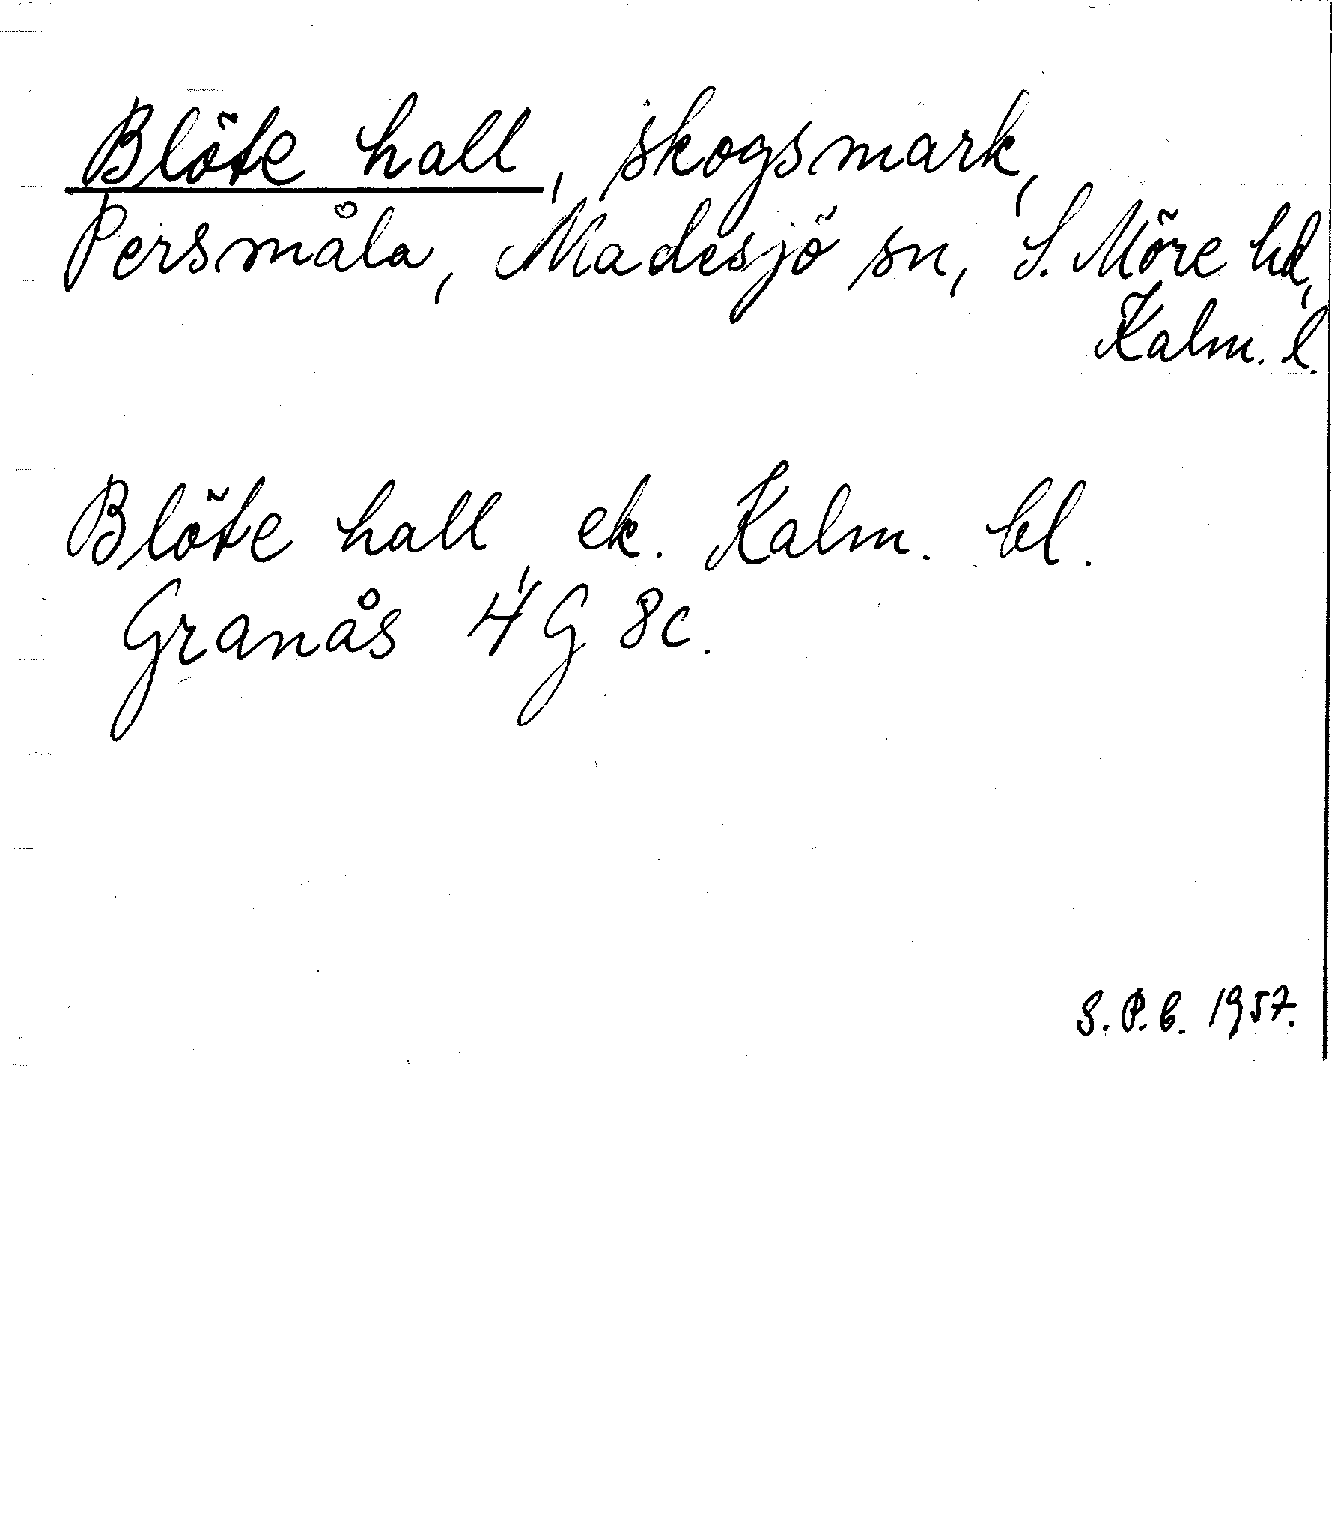 Blöte hall, skogsmark,
Persmåla, Madesjö sn, S. Möre hd,
Kalm. l.
Blöte hall, ek. Kalm. bl.
Granås 4G 8c.
S.P.b. 1957.